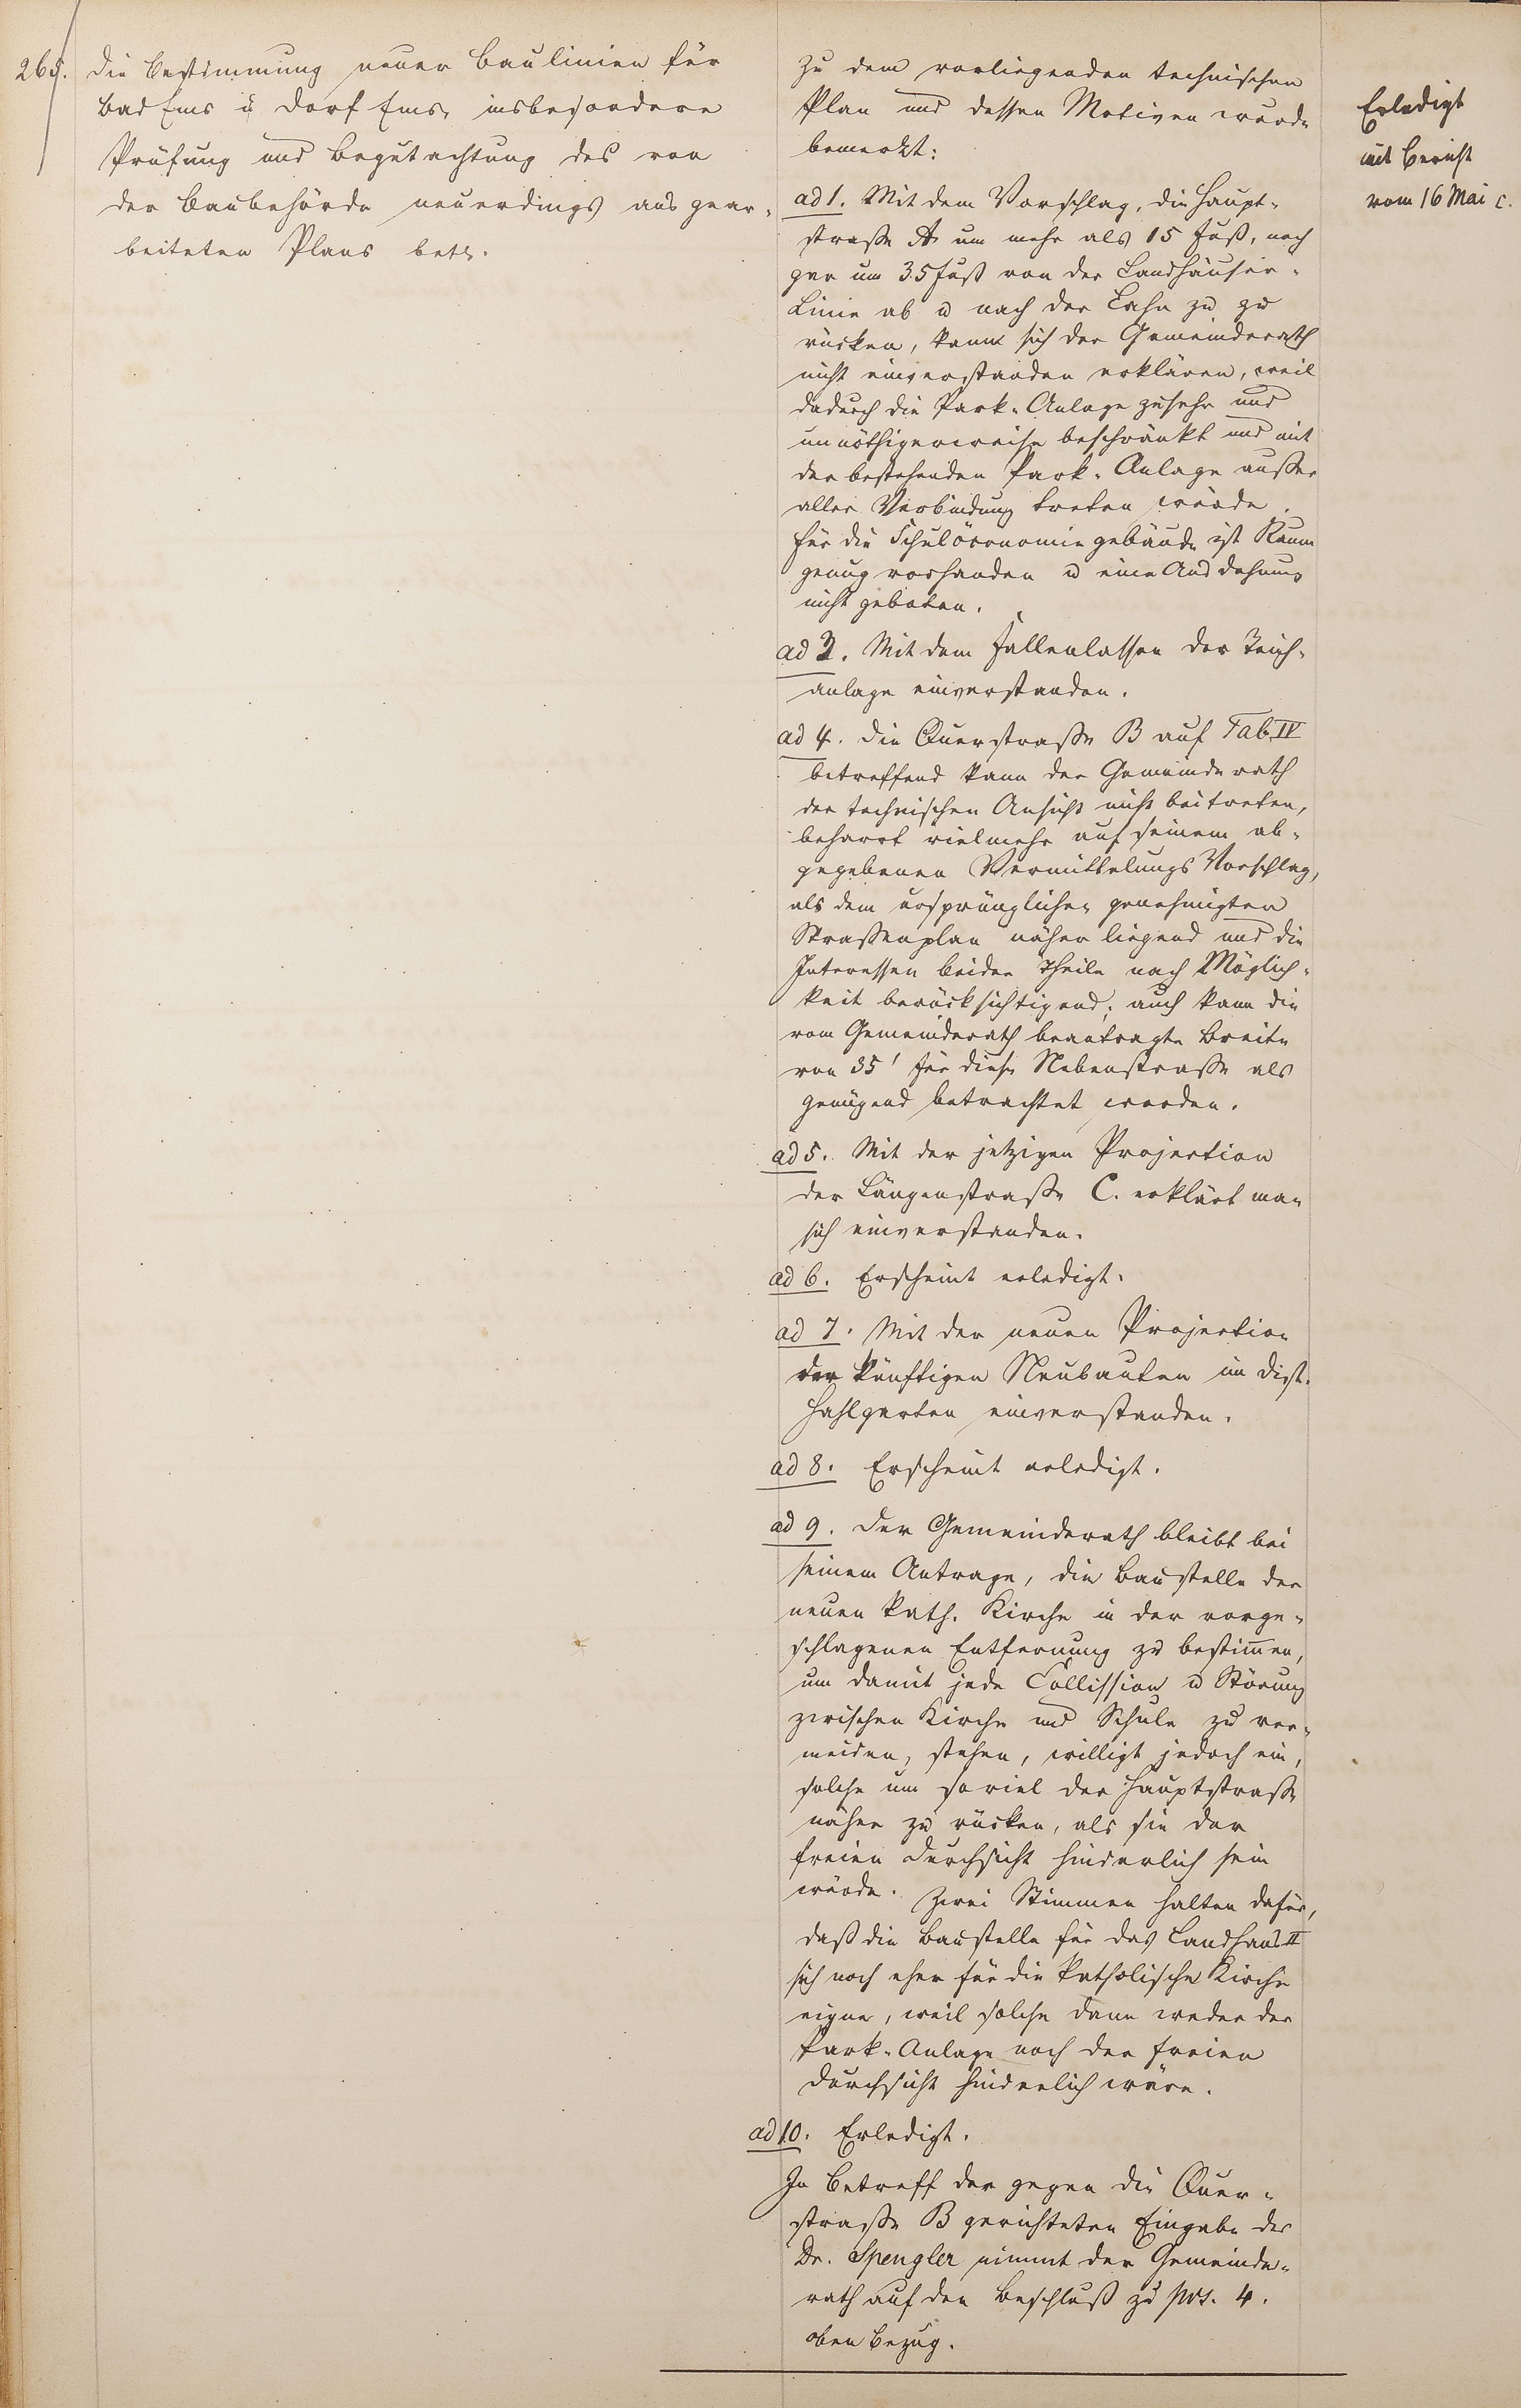 265.
die Bestimmung neuer Baulinien für
Bad Ems u Dorf Ems, insbesondere
Prüfung und Begutachtung des von
der Baubehörde neuerdings ausgear-
beiteten Plans betr.
Zu dem vorliegenden technischen
Plan und dessen Motiven wurde
bemerkt:
ad 1. Mit dem Vorschlag, die Haupt-
straße A um mehr als 15 Fuß, noch
gar um 35 Fuß von der Landhäuser-
Linie ab u nach der Lahn zu zu
rücken, kann sich der Gemeinderath
nicht einverstanden erklären, weil
dadurch die Park-Anlage zusehr und
unnöthigerweise beschränkt und mit
der bestehenden Park-Anlage außer
aller Verbindung treten würde.
Für die Schulöconomiegebäude ist Raum
genug vorhanden u eine Ausdehnung
nicht geboten.
ad 2. Mit dem Fallenlassen der Teich-
anlage einverstanden.
ad 4. Die Querstraße B auf Tab IV
betreffend kann der Gemeinderath
der technischen Ansicht nicht beitreten,
beharrt vielmehr auf seinem ab-
gegebenen Vermittelungs Vorschlag,
als dem ursprünglichen genehmigten
Straßenplan näher liegend und die
Interessen beider Theile nach Möglich-
keit berücksichtigend; auch kann die
vom Gemeinderath beantragte Breite
von 35' für diese Nebenstraße als
genügend betrachtet werden.
ad 5. Mit der jetzigen Projection
der Längenstraße C. erklärt man
sich einverstanden.
ad 6. Erscheint erledigt.
ad 7. Mit der neuen Projection
der künftigen Neubauten im Dist.
Hahlgarten einverstanden.
ad 8. Erscheint erledigt.
ad 9. Der Gemeinderath bleibt bei
seinem Antrage, die Baustelle der
neuen kath. Kirche in der vorge-
schlagenen Entfernung zu bestimmen,
um damit jede Collission u Störung
zwischen Kirche und Schule zu ver-
meiden, stehen, willigt jedoch ein,
solche um soviel der Hauptstraße
näher zu rücken, als sie der
freien Durchsicht hinderlich sein
würde. Zwei Stimmen halten dafür,
daß die Baustelle für das Landhaus II
sich noch eher für die katholische Kirche
eigne, weil solche dann weder der
Park-Anlage noch der freien
Durchsicht hinderlich wäre.
ad 10. Erledigt.
In Betreff der gegen die Quer-
straße B gerichteten Eingabe des
Dr. Spengler nimmt der Gemeinde-
rath auf den Beschluß zu pos. 4.
oben Bezug.
Erledigt
mit Bericht
vom 16 Mai c.